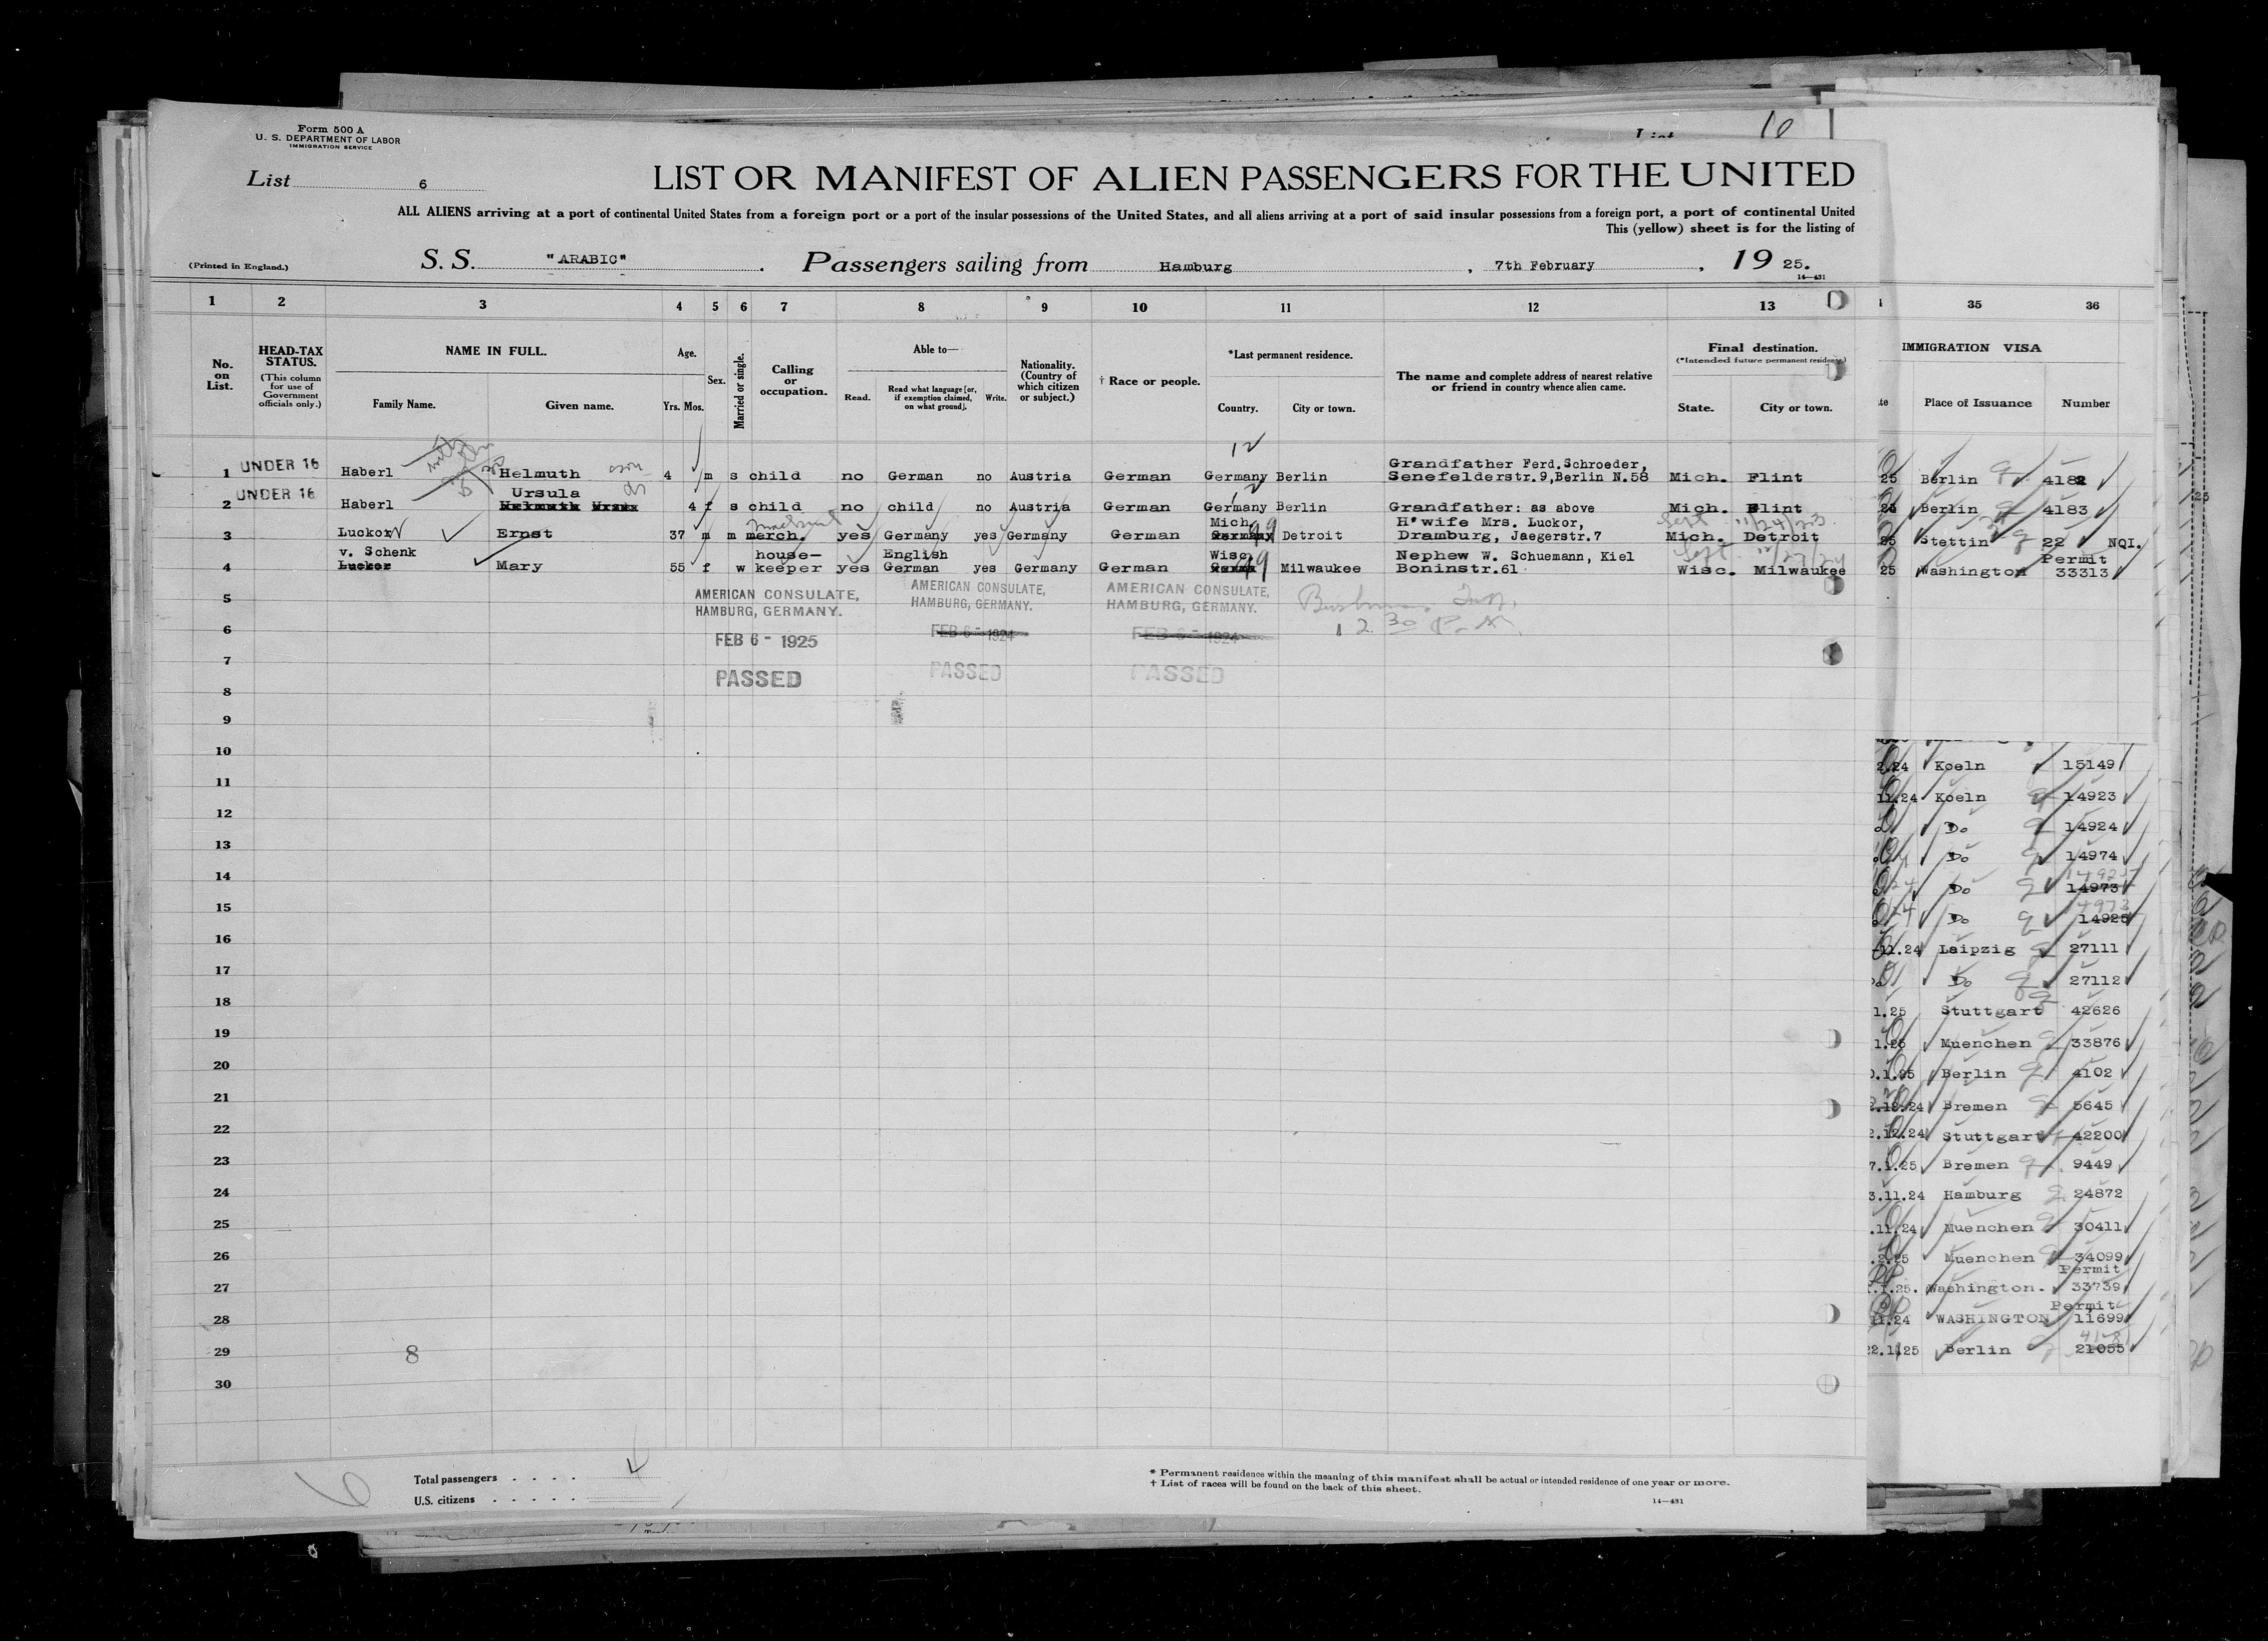 Form 500 A
U. S. DEPARTMENT OF LABOR
IMMIGRATION SERVICE
List 6
List 10
LIST OR MANIFEST OF ALIEN PASSENGERS FOR THE UNITED
ALL ALIENS arriving at a port of continental United States from a foreign port or a port of the insular possessions of the United States, and all aliens arriving at a port of said insular possessions from a foreign port, a port of continental United
This (yellow) sheet is for the listing of
(Printed in England.)
S. S. "ARABIC" . Passengers sailing from Hamburg , 7th February , 19 25.
14—431
1 2 3 4 5 6 7 8 9 10 11 12 13 35 36
No. on List.
HEAD-TAX STATUS.
(This column for use of Government officials only.)
NAME IN FULL.
Family Name. Given name.
Age.
Yrs. Mos.
Sex.
Married or single.
Calling or occupation.
Able to—
Read. Read what language [or, if exemption claimed, on what ground]. Write.
Nationality. (Country of which citizen or subject.)
† Race or people.
*Last permanent residence.
Country. City or town.
The name and complete address of nearest relative or friend in country whence alien came.
Final destination.
(*Intended future permanent residence)
State. City or town.
IMMIGRATION VISA
Place of Issuance Number
12
1 UNDER 16 Haberl Helmuth son 4 m s child no German no Austria German Germany Berlin Grandfather Ferd.Schroeder, Senefelderstr.9,Berlin N.58 Mich. Flint 25 Berlin 4182
2 UNDER 16 Haberl Ursula 4 f s child no child no Austria German Germany Berlin Grandfather: as above Mich. Flint 25 Berlin 4183
3 Luckor Ernst 37 m m merch. yes Germany yes Germany German Mich. Germany 99 Detroit H'wife Mrs. Luckor, Dramburg, Jaegerstr.7 Mich. Detroit Sept 11/24/23 25 Stettin 22 NQI.
4 v. Schenk Luckor Mary 55 f w house-keeper yes English German yes Germany German Wisc. 99 Milwaukee Nephew W. Schuemann, Kiel Boninstr.61 Wisc. Milwaukee 25 Washington Permit 33313
5
AMERICAN CONSULATE, HAMBURG, GERMANY.
AMERICAN CONSULATE, HAMBURG, GERMANY.
AMERICAN CONSULATE, HAMBURG, GERMANY.
6
FEB 6 - 1925
FEB 6 - 1924
FEB 6 - 1924
12 30 P.M.
7
PASSED
PASSED
PASSED
8
9
10
2.24 Koeln 15149
11
11.24 Koeln 14923
12
Do 14924
13
Do 14974
14
Do 14973 14925
15
Do 14925 14973
16
11.24 Leipzig 27111
17
Do 27112
18
1.25 Stuttgart 42626
19
1.25 Muenchen 33876
20
0.1.25 Berlin 4102
21
2.12.24 Bremen 5645
22
2.12.24 Stuttgart 42200
23
7.1.25 Bremen 9449
24
3.11.24 Hamburg 24872
25
.11.24 Muenchen 30411
26
.2.25 Muenchen 34099
27
1.25. Washington. Permit 33739
28
11.24 WASHINGTON Permit 11699
29 8
22.1.25 Berlin 21055
30
6
Total passengers . . . .
U.S. citizens . . . . .
* Permanent residence within the meaning of this manifest shall be actual or intended residence of one year or more.
† List of races will be found on the back of this sheet.
14—431